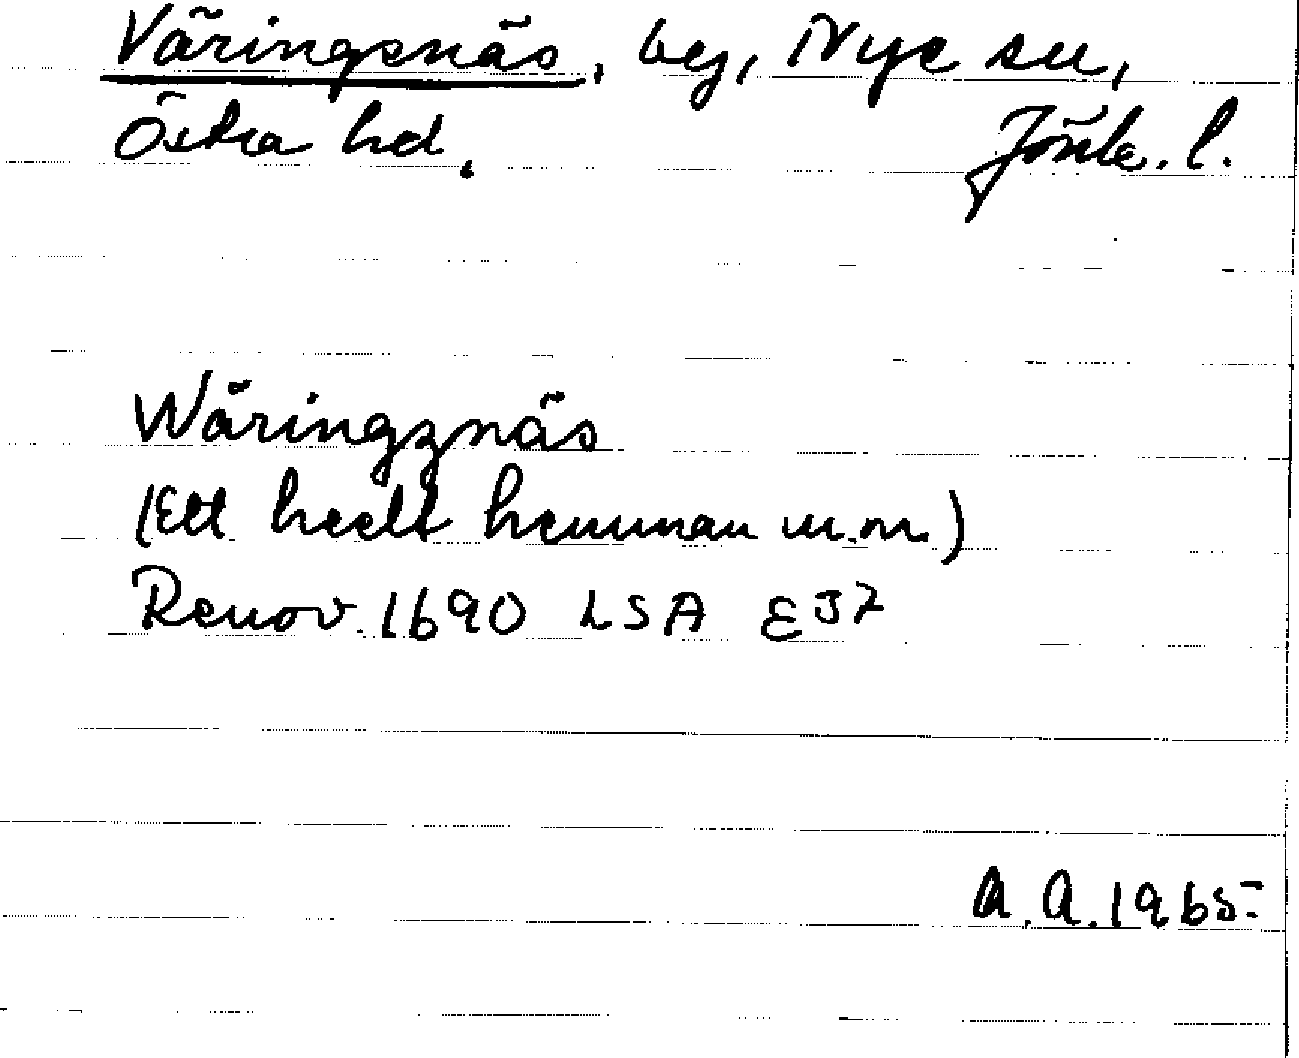 Väringsnäs, by, Nye sn,
Östra hd. Jönk. l.
Wäringznäs
(Ett heelt hemman m.m.)
Renov. 1690 LSA E37
A.A. 1965